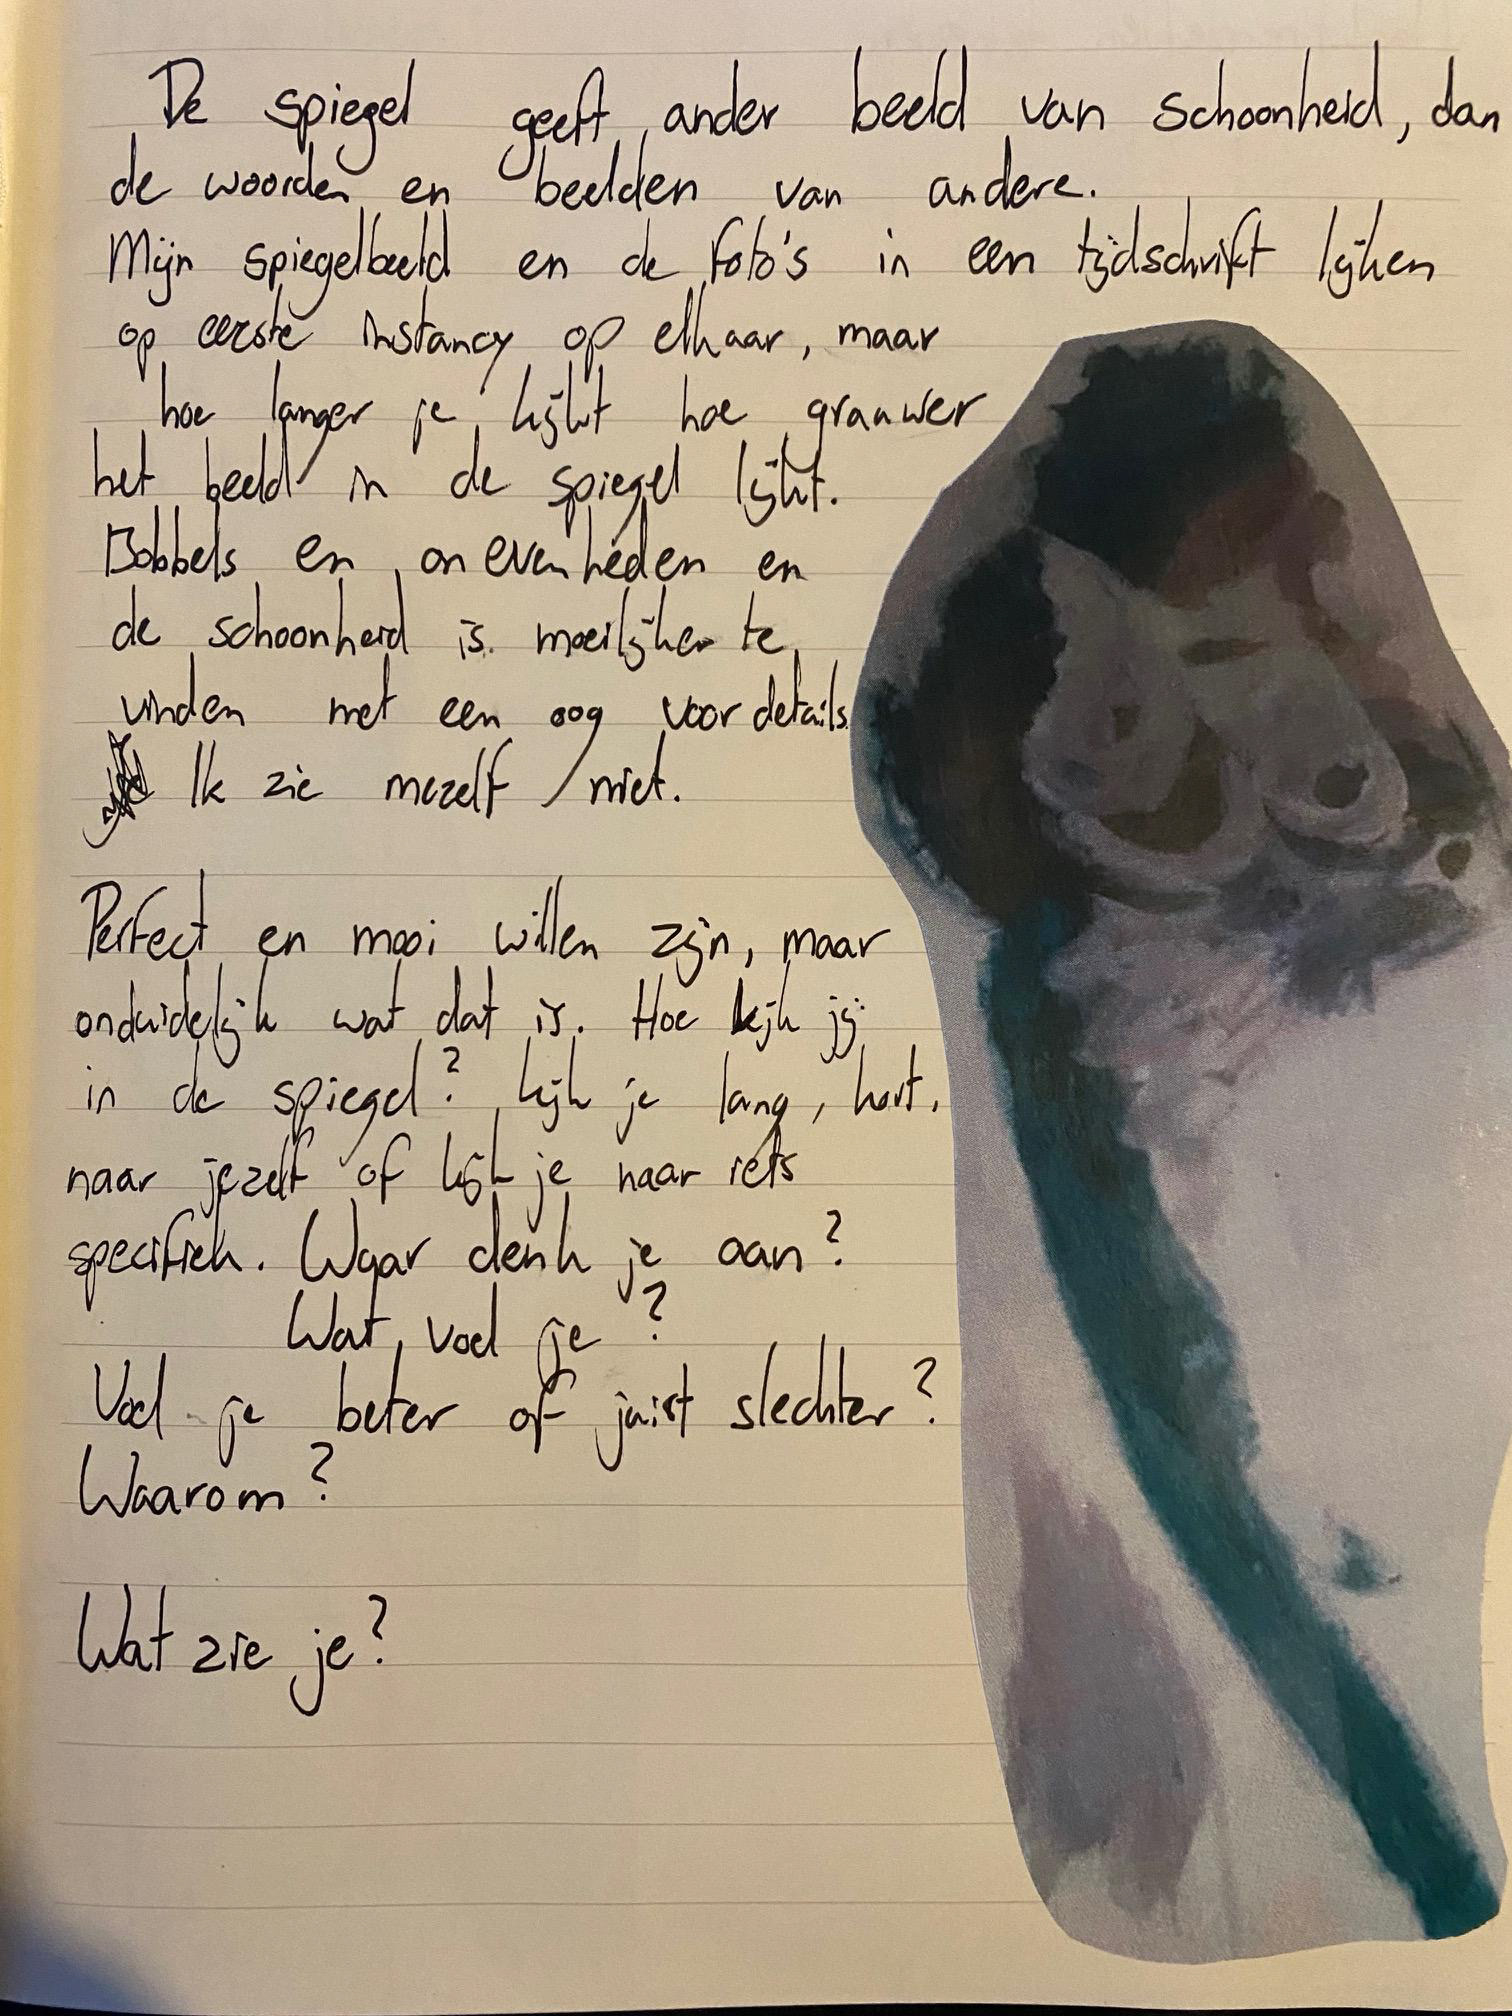 De spiegel geeft ander beeld van schoonheid, dan
de woorden en beelden van andere.
Mijn spiegelbeeld en de foto's in een tijdschrift lijken
op eerste instancy op elkaar, maar
hoe langer je kijkt hoe grauwer
het beeld in de spiegel lijkt.
Bobbels en onevenheden en
de schoonheid is moeilijker te
vinden met een oog voor details.
Ik zie mezelf niet.
Perfect en mooi willen zijn, maar
onduidelijk wat dat is. Hoe kijk jij
in de spiegel? kijk je lang, kort,
naar jezelf of kijk je naar iets
specifiek. Waar denk je aan?
Wat voel je?
Voel je beter of juist slechter?
Waarom?
Wat zie je?